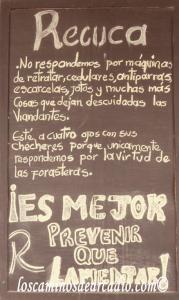 Recuca
.No respondemos por máquinas
de retratar, cedulares, antiparras,
escarcelas, fotos y muchas más
Cosas que dejan descuidadas los
Viandantes.
Esté, a cuatro ojos con sus
Chécheres porque, unicamente
respondemos por la virtud de
las forasteras.
¡ES MEJOR
PREVENIR
QUE
LAMENTAR!
R
loscaminosdearcadio.com©